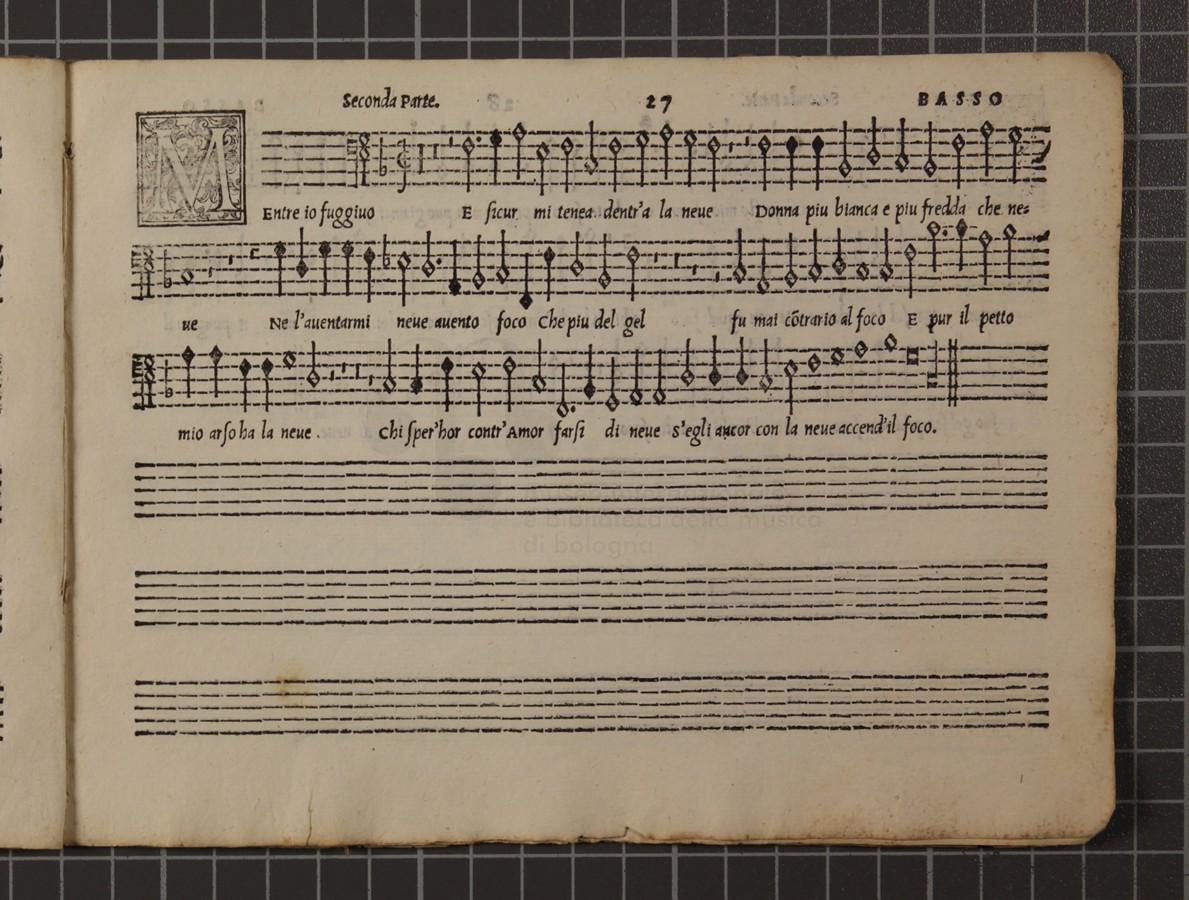 Seconda Parte. 27 BASSO
MEntre io fuggiuo E sicur mi tenea dentr'a la neue Donna piu bianca e piu fredda che ne=
ue Ne l'auentarmi neue auento foco Che piu del gel fu mai cõtrario al foco E pur il petto
mio arso ha la neue. Chi sper'hor contr'Amor farsi di neue s'egli ancor con la neue accend'il foco.
e biblioteca della musica
di bologna